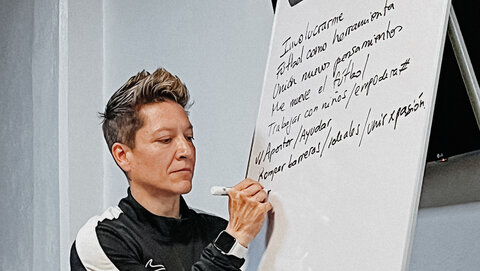 Involucrarme
Fútbol como herramienta
Unión nuevos pensamientos
Me mueve el fútbol/
Trabajar con niños/empoderar#
Aportar/Ayudar
Romper barreras/ideales/unir x pasión